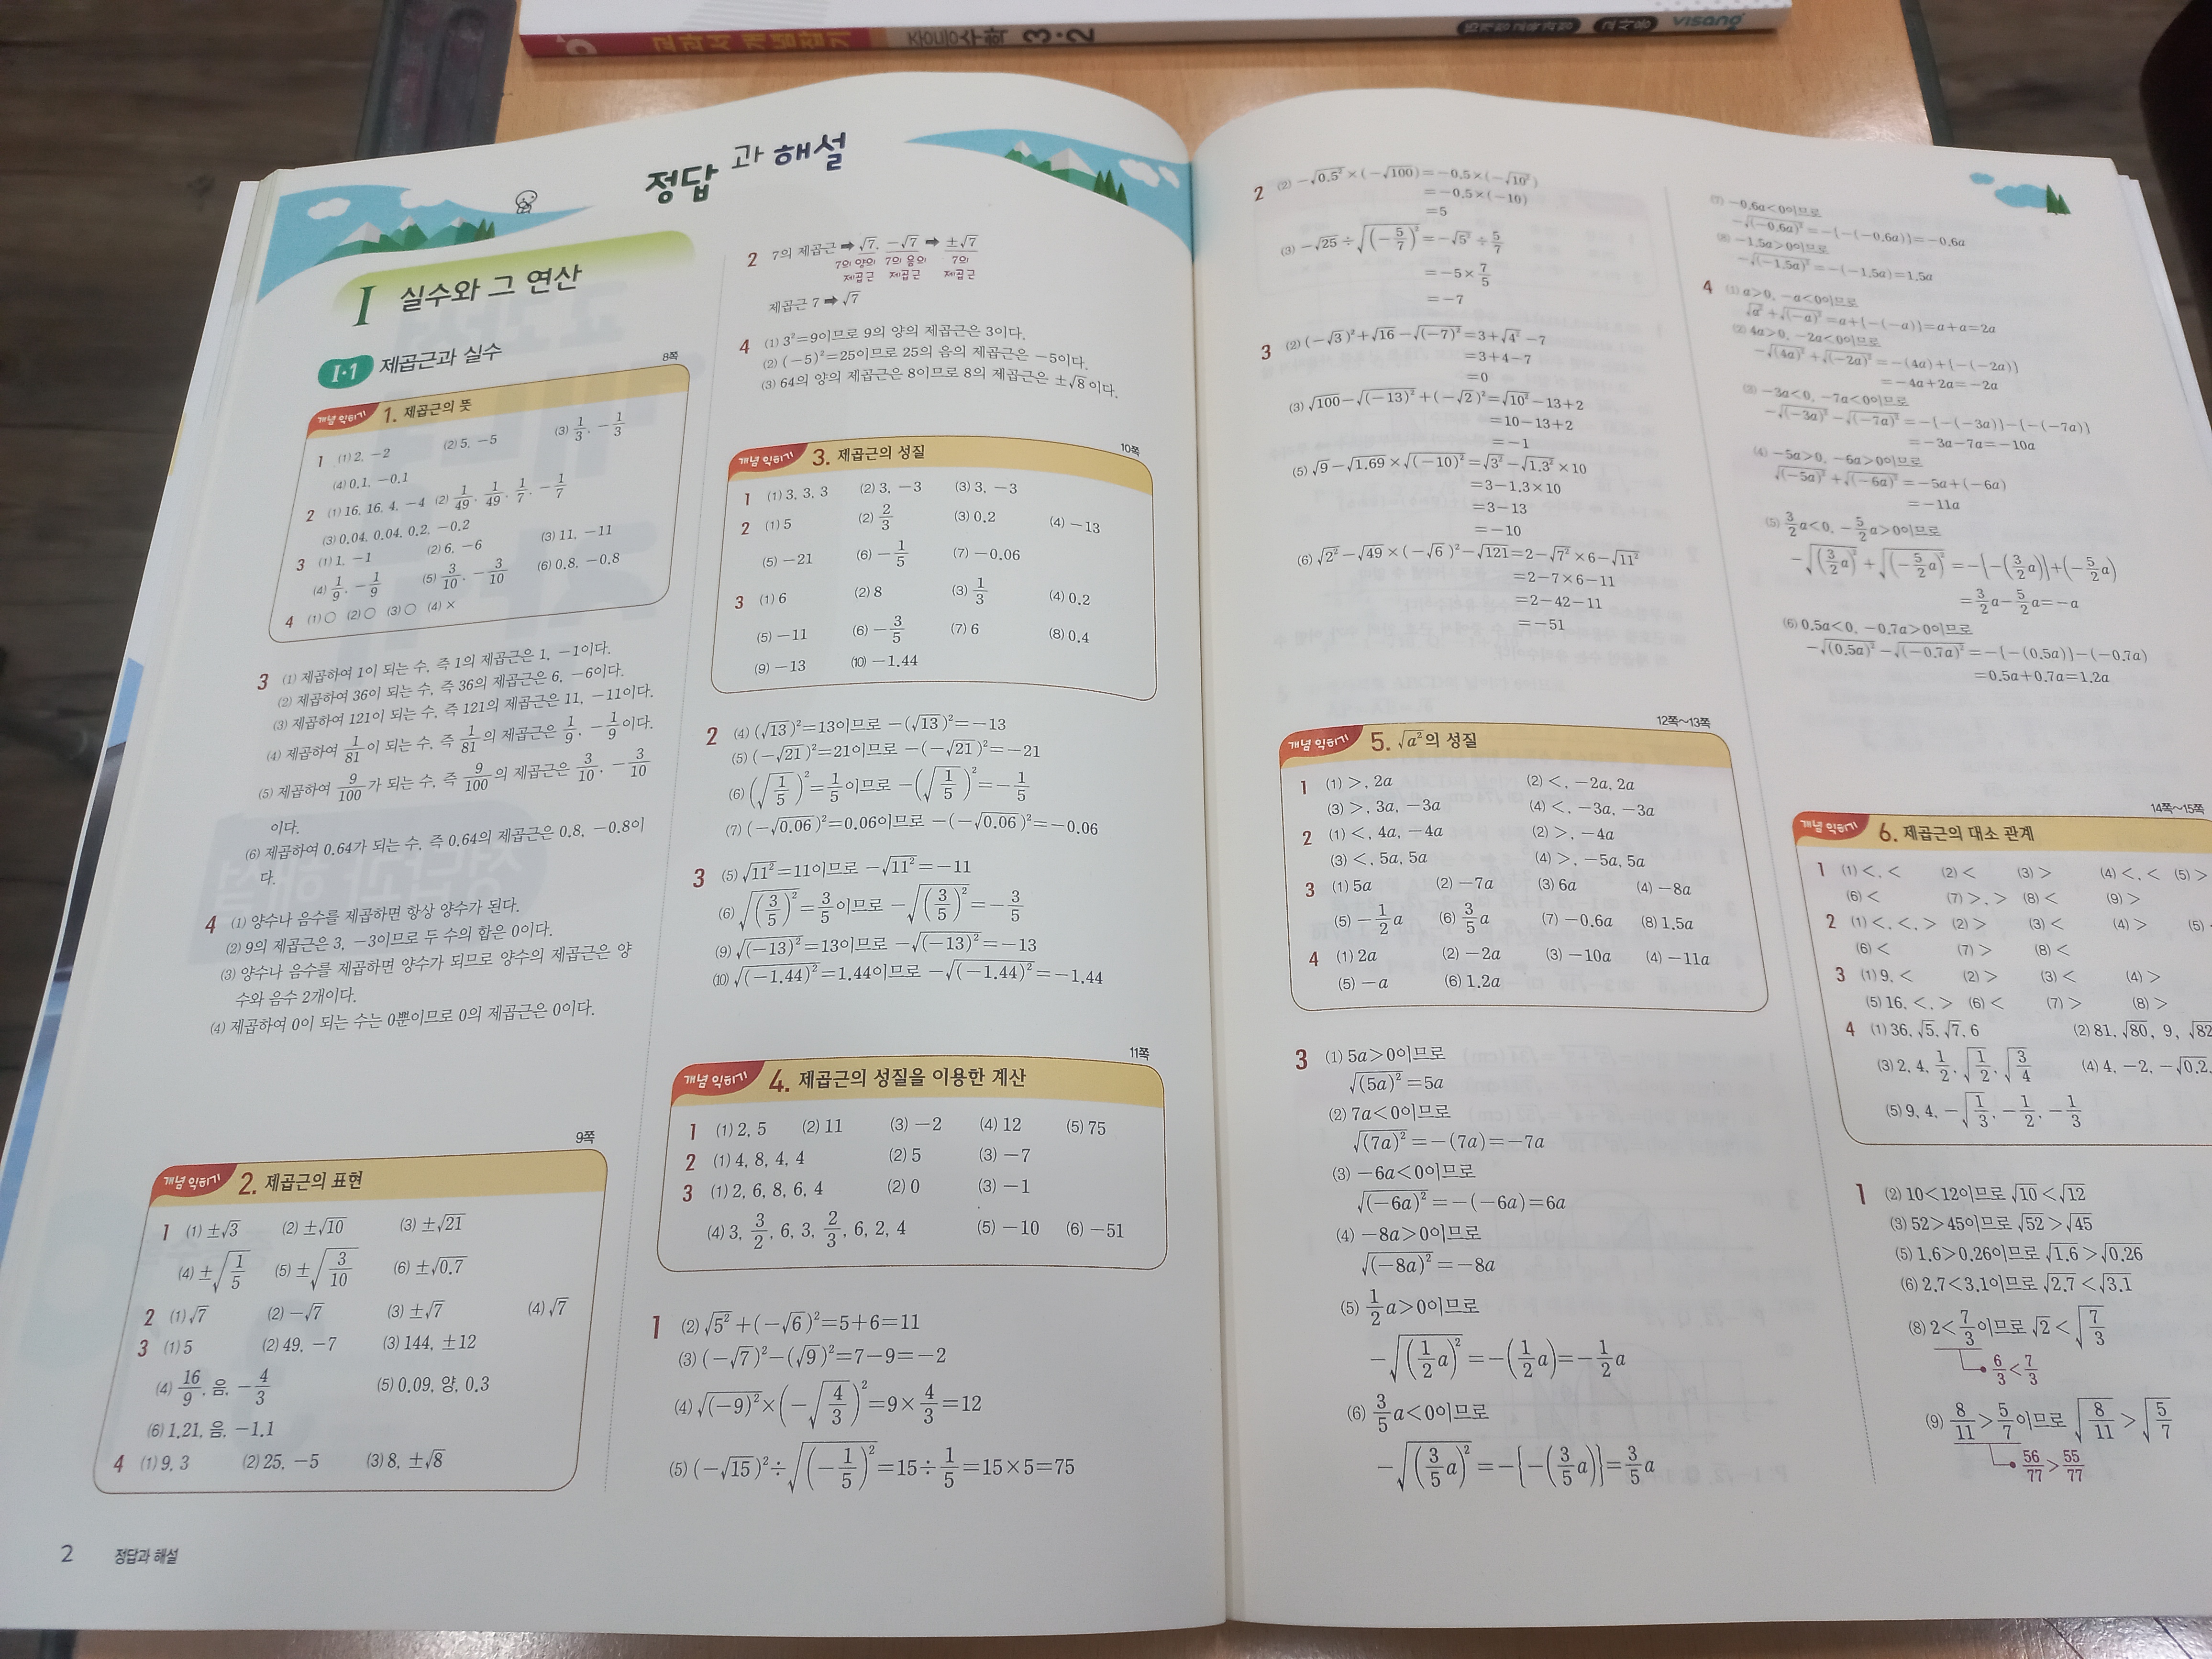 교과서 개념잡기 중등수학 3·2 15개정 교육과정 교사용 visang
정답과 해설
I 실수와 그 연산
I·1 제곱근과 실수
8쪽
개념 익히기 1. 제곱근의 뜻
1 (1) 2, −2 (2) 5, −5 (3) 1/3, −1/3
(4) 0.1, −0.1
2 (1) 16, 16, 4, −4 (2) 1/49, 1/49, 1/7, −1/7
(3) 0.04, 0.04, 0.2, −0.2
3 (1) 1, −1 (2) 6, −6 (3) 11, −11
(4) 1/9, −1/9 (5) 3/10, −3/10 (6) 0.8, −0.8
4 (1) ○ (2) ○ (3) ○ (4) ×
3 (1) 제곱하여 1이 되는 수, 즉 1의 제곱근은 1, −1이다.
(2) 제곱하여 36이 되는 수, 즉 36의 제곱근은 6, −6이다.
(3) 제곱하여 121이 되는 수, 즉 121의 제곱근은 11, −11이다.
(4) 제곱하여 1/81이 되는 수, 즉 1/81의 제곱근은 1/9, −1/9이다.
(5) 제곱하여 9/100가 되는 수, 즉 9/100의 제곱근은 3/10, −3/10
이다.
(6) 제곱하여 0.64가 되는 수, 즉 0.64의 제곱근은 0.8, −0.8이
다.
4 (1) 양수나 음수를 제곱하면 항상 양수가 된다.
(2) 9의 제곱근은 3, −3이므로 두 수의 합은 0이다.
(3) 양수나 음수를 제곱하면 양수가 되므로 양수의 제곱근은 양
수와 음수 2개이다.
(4) 제곱하여 0이 되는 수는 0뿐이므로 0의 제곱근은 0이다.
9쪽
개념 익히기 2. 제곱근의 표현
1 (1) ±√3 (2) ±√10 (3) ±√21
(4) ±√(1/5) (5) ±√(3/10) (6) ±√0.7
2 (1) √7 (2) −√7 (3) ±√7 (4) √7
3 (1) 5 (2) 49, −7 (3) 144, ±12
(4) 16/9, 음, −4/3 (5) 0.09, 양, 0.3
(6) 1.21, 음, −1.1
4 (1) 9, 3 (2) 25, −5 (3) 8, ±√8
2 정답과 해설
2 7의 제곱근 ➡ √7, −√7 ➡ ±√7
7의 양의 7의 음의 7의
제곱근 제곱근 제곱근
제곱근 7 ➡ √7
4 (1) 3²=9이므로 9의 양의 제곱근은 3이다.
(2) (−5)²=25이므로 25의 음의 제곱근은 −5이다.
(3) 64의 양의 제곱근은 8이므로 8의 제곱근은 ±√8이다.
10쪽
개념 익히기 3. 제곱근의 성질
1 (1) 3, 3, 3 (2) 3, −3 (3) 3, −3
2 (1) 5 (2) 2/3 (3) 0.2 (4) −13
(5) −21 (6) −1/5 (7) −0.06
3 (1) 6 (2) 8 (3) 1/3 (4) 0.2
(5) −11 (6) −3/5 (7) 6 (8) 0.4
(9) −13 (10) −1.44
2 (4) (√13)²=13이므로 −(√13)²=−13
(5) (−√21)²=21이므로 −(−√21)²=−21
(6) (√(1/5))²=1/5이므로 −(√(1/5))²=−1/5
(7) (−√0.06)²=0.06이므로 −(−√0.06)²=−0.06
3 (5) √(11²)=11이므로 −√(11²)=−11
(6) √((3/5)²)=3/5이므로 −√((3/5)²)=−3/5
(9) √((−13)²)=13이므로 −√((−13)²)=−13
(10) √((−1.44)²)=1.44이므로 −√((−1.44)²)=−1.44
11쪽
개념 익히기 4. 제곱근의 성질을 이용한 계산
1 (1) 2, 5 (2) 11 (3) −2 (4) 12 (5) 75
2 (1) 4, 8, 4, 4 (2) 5 (3) −7
3 (1) 2, 6, 8, 6, 4 (2) 0 (3) −1
(4) 3, 3/2, 6, 3, 2/3, 6, 2, 4 (5) −10 (6) −51
1 (2) √(5²)+(−√6)²=5+6=11
(3) (−√7)²−(√9)²=7−9=−2
(4) √((−9)²)×(−√(4/3))²=9×4/3=12
(5) (−√15)²÷√((−1/5)²)=15÷1/5=15×5=75
2 (2) −√(0.5²)×(−√100)=−0.5×(−√(10²))
=−0.5×(−10)
=5
(3) −√25÷√((−5/7)²)=−√(5²)÷5/7
=−5×7/5
=−7
3 (2) (−√3)²+√16−√((−7)²)=3+√(4²)−7
=3+4−7
=0
(3) √100−√((−13)²)+(−√2)²=√(10²)−13+2
=10−13+2
=−1
(5) √9−√1.69×√((−10)²)=√(3²)−√(1.3²)×10
=3−1.3×10
=3−13
=−10
(6) √(2²)−√49×(−√6)²−√121=2−√(7²)×6−√(11²)
=2−7×6−11
=2−42−11
=−51
12쪽~13쪽
개념 익히기 5. √(a²)의 성질
1 (1) >, 2a (2) <, −2a, 2a
(3) >, 3a, −3a (4) <, −3a, −3a
2 (1) <, 4a, −4a (2) >, −4a
(3) <, 5a, 5a (4) >, −5a, 5a
3 (1) 5a (2) −7a (3) 6a (4) −8a
(5) −1/2a (6) 3/5a (7) −0.6a (8) 1.5a
4 (1) 2a (2) −2a (3) −10a (4) −11a
(5) −a (6) 1.2a
3 (1) 5a>0이므로
√((5a)²)=5a
(2) 7a<0이므로
√((7a)²)=−(7a)=−7a
(3) −6a<0이므로
√((−6a)²)=−(−6a)=6a
(4) −8a>0이므로
√((−8a)²)=−8a
(5) 1/2a>0이므로
−√((1/2a)²)=−(1/2a)=−1/2a
(6) 3/5a<0이므로
−√((3/5a)²)=−{−(3/5a)}=3/5a
(7) −0.6a<0이므로
−√((−0.6a)²)=−{−(−0.6a)}=−0.6a
(8) −1.5a>0이므로
−√((−1.5a)²)=−(−1.5a)=1.5a
4 (1) a>0, −a<0이므로
√(a²)+√((−a)²)=a+{−(−a)}=a+a=2a
(2) 4a>0, −2a<0이므로
−√((4a)²)+√((−2a)²)=−(4a)+{−(−2a)}
=−4a+2a=−2a
(3) −3a<0, −7a<0이므로
−√((−3a)²)−√((−7a)²)=−{−(−3a)}−{−(−7a)}
=−3a−7a=−10a
(4) −5a>0, −6a>0이므로
√((−5a)²)+√((−6a)²)=−5a+(−6a)
=−11a
(5) 3/2a<0, −5/2a>0이므로
−√((3/2a)²)+√((−5/2a)²)=−{−(3/2a)}+(−5/2a)
=3/2a−5/2a=−a
(6) 0.5a<0, −0.7a>0이므로
−√((0.5a)²)−√((−0.7a)²)=−{−(0.5a)}−(−0.7a)
=0.5a+0.7a=1.2a
14쪽~15쪽
개념 익히기 6. 제곱근의 대소 관계
1 (1) <, < (2) < (3) > (4) <, < (5) >
(6) < (7) >, > (8) < (9) >
2 (1) <, <, > (2) > (3) < (4) > (5)
(6) < (7) > (8) <
3 (1) 9, < (2) > (3) < (4) >
(5) 16, <, > (6) < (7) > (8) >
4 (1) 36, √5, √7, 6 (2) 81, √80, 9, √82
(3) 2, 4, 1/2, √(1/2), √(3/4) (4) 4, −2, −√0.2
(5) 9, 4, −√(1/3), −1/2, −1/3
1 (2) 10<12이므로 √10<√12
(3) 52>45이므로 √52>√45
(5) 1.6>0.26이므로 √1.6>√0.26
(6) 2.7<3.1이므로 √2.7<√3.1
(8) 2<7/3이므로 √2<√(7/3)
6/3<7/3
(9) 8/11>5/7이므로 √(8/11)>√(5/7)
56/77>55/77